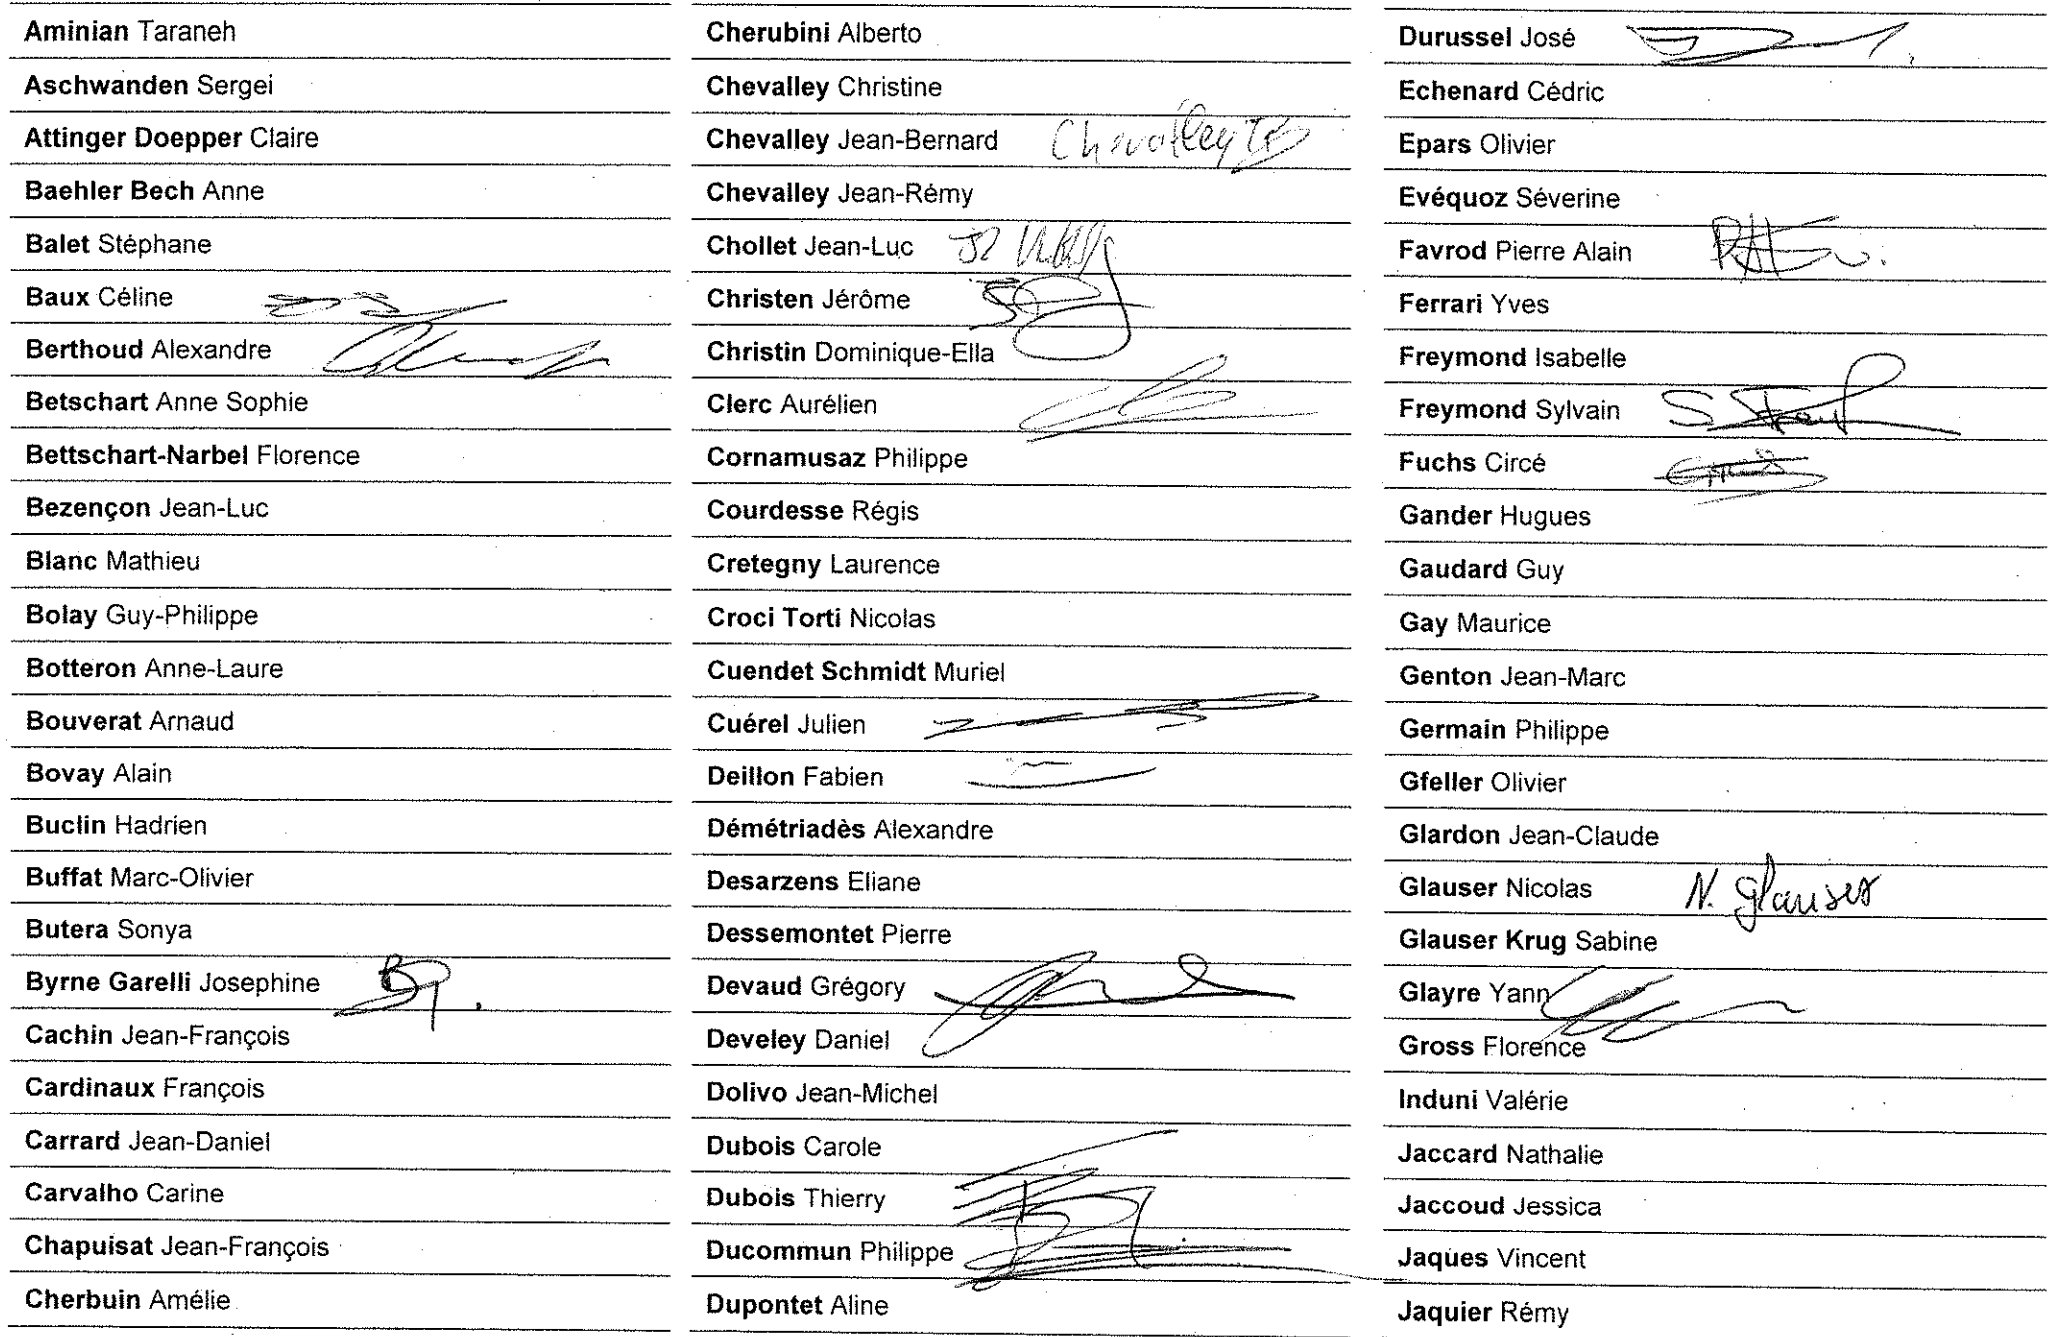 Aminian Taraneh
Aschwanden Sergei
Attinger Doepper Claire
Baehler Bech Anne
Balet Stéphane
Baux Céline
Berthoud Alexandre
Betschart Anne Sophie
Bettschart-Narbel Florence
Bezençon Jean-Luc
Blanc Mathieu
Bolay Guy-Philippe
Botteron Anne-Laure
Bouverat Arnaud
Bovay Alain
Buclin Hadrien
Buffat Marc-Olivier
Butera Sonya
Byrne Garelli Josephine
Cachin Jean-François
Cardinaux François
Carrard Jean-Daniel
Carvalho Carine
Chapuisat Jean-François
Cherbuin Amélie
Cherubini Alberto
Chevalley Christine
Chevalley Jean-Bernard Chevalley JB
Chevalley Jean-Rémy
Chollet Jean-Luc
Christen Jérôme
Christin Dominique-Ella
Clerc Aurélien
Cornamusaz Philippe
Courdesse Régis
Cretegny Laurence
Croci Torti Nicolas
Cuendet Schmidt Muriel
Cuérel Julien
Deillon Fabien
Démétriadès Alexandre
Desarzens Eliane
Dessemontet Pierre
Devaud Grégory
Develey Daniel
Dolivo Jean-Michel
Dubois Carole
Dubois Thierry
Ducommun Philippe
Dupontet Aline
Durussel José
Echenard Cédric
Epars Olivier
Evéquoz Séverine
Favrod Pierre Alain
Ferrari Yves
Freymond Isabelle
Freymond Sylvain
Fuchs Circé
Gander Hugues
Gaudard Guy
Gay Maurice
Genton Jean-Marc
Germain Philippe
Gfeller Olivier
Glardon Jean-Claude
Glauser Nicolas N. Glauser
Glauser Krug Sabine
Glayre Yann
Gross Florence
Induni Valérie
Jaccard Nathalie
Jaccoud Jessica
Jaques Vincent
Jaquier Rémy